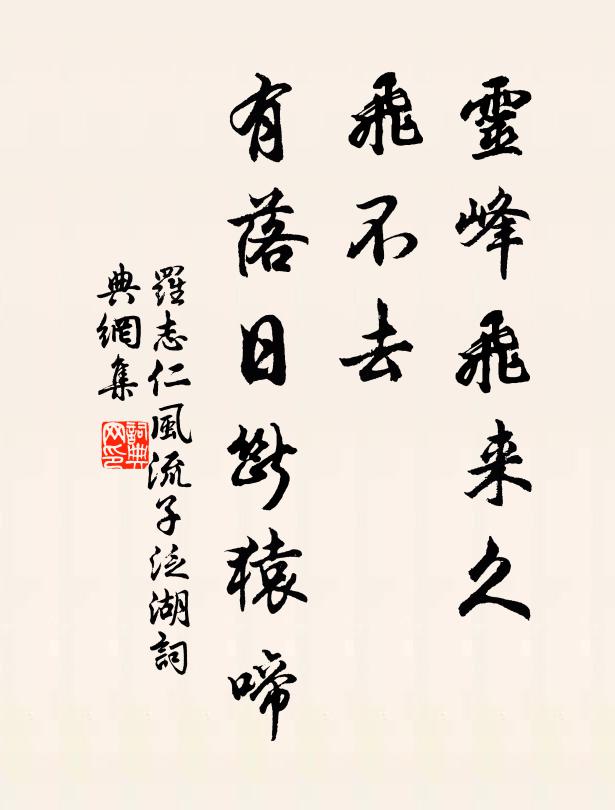 靈峰飛来久
飛不去
有落日斷猿啼
羅志仁風流子泛湖詞
典網集
詞典
网印